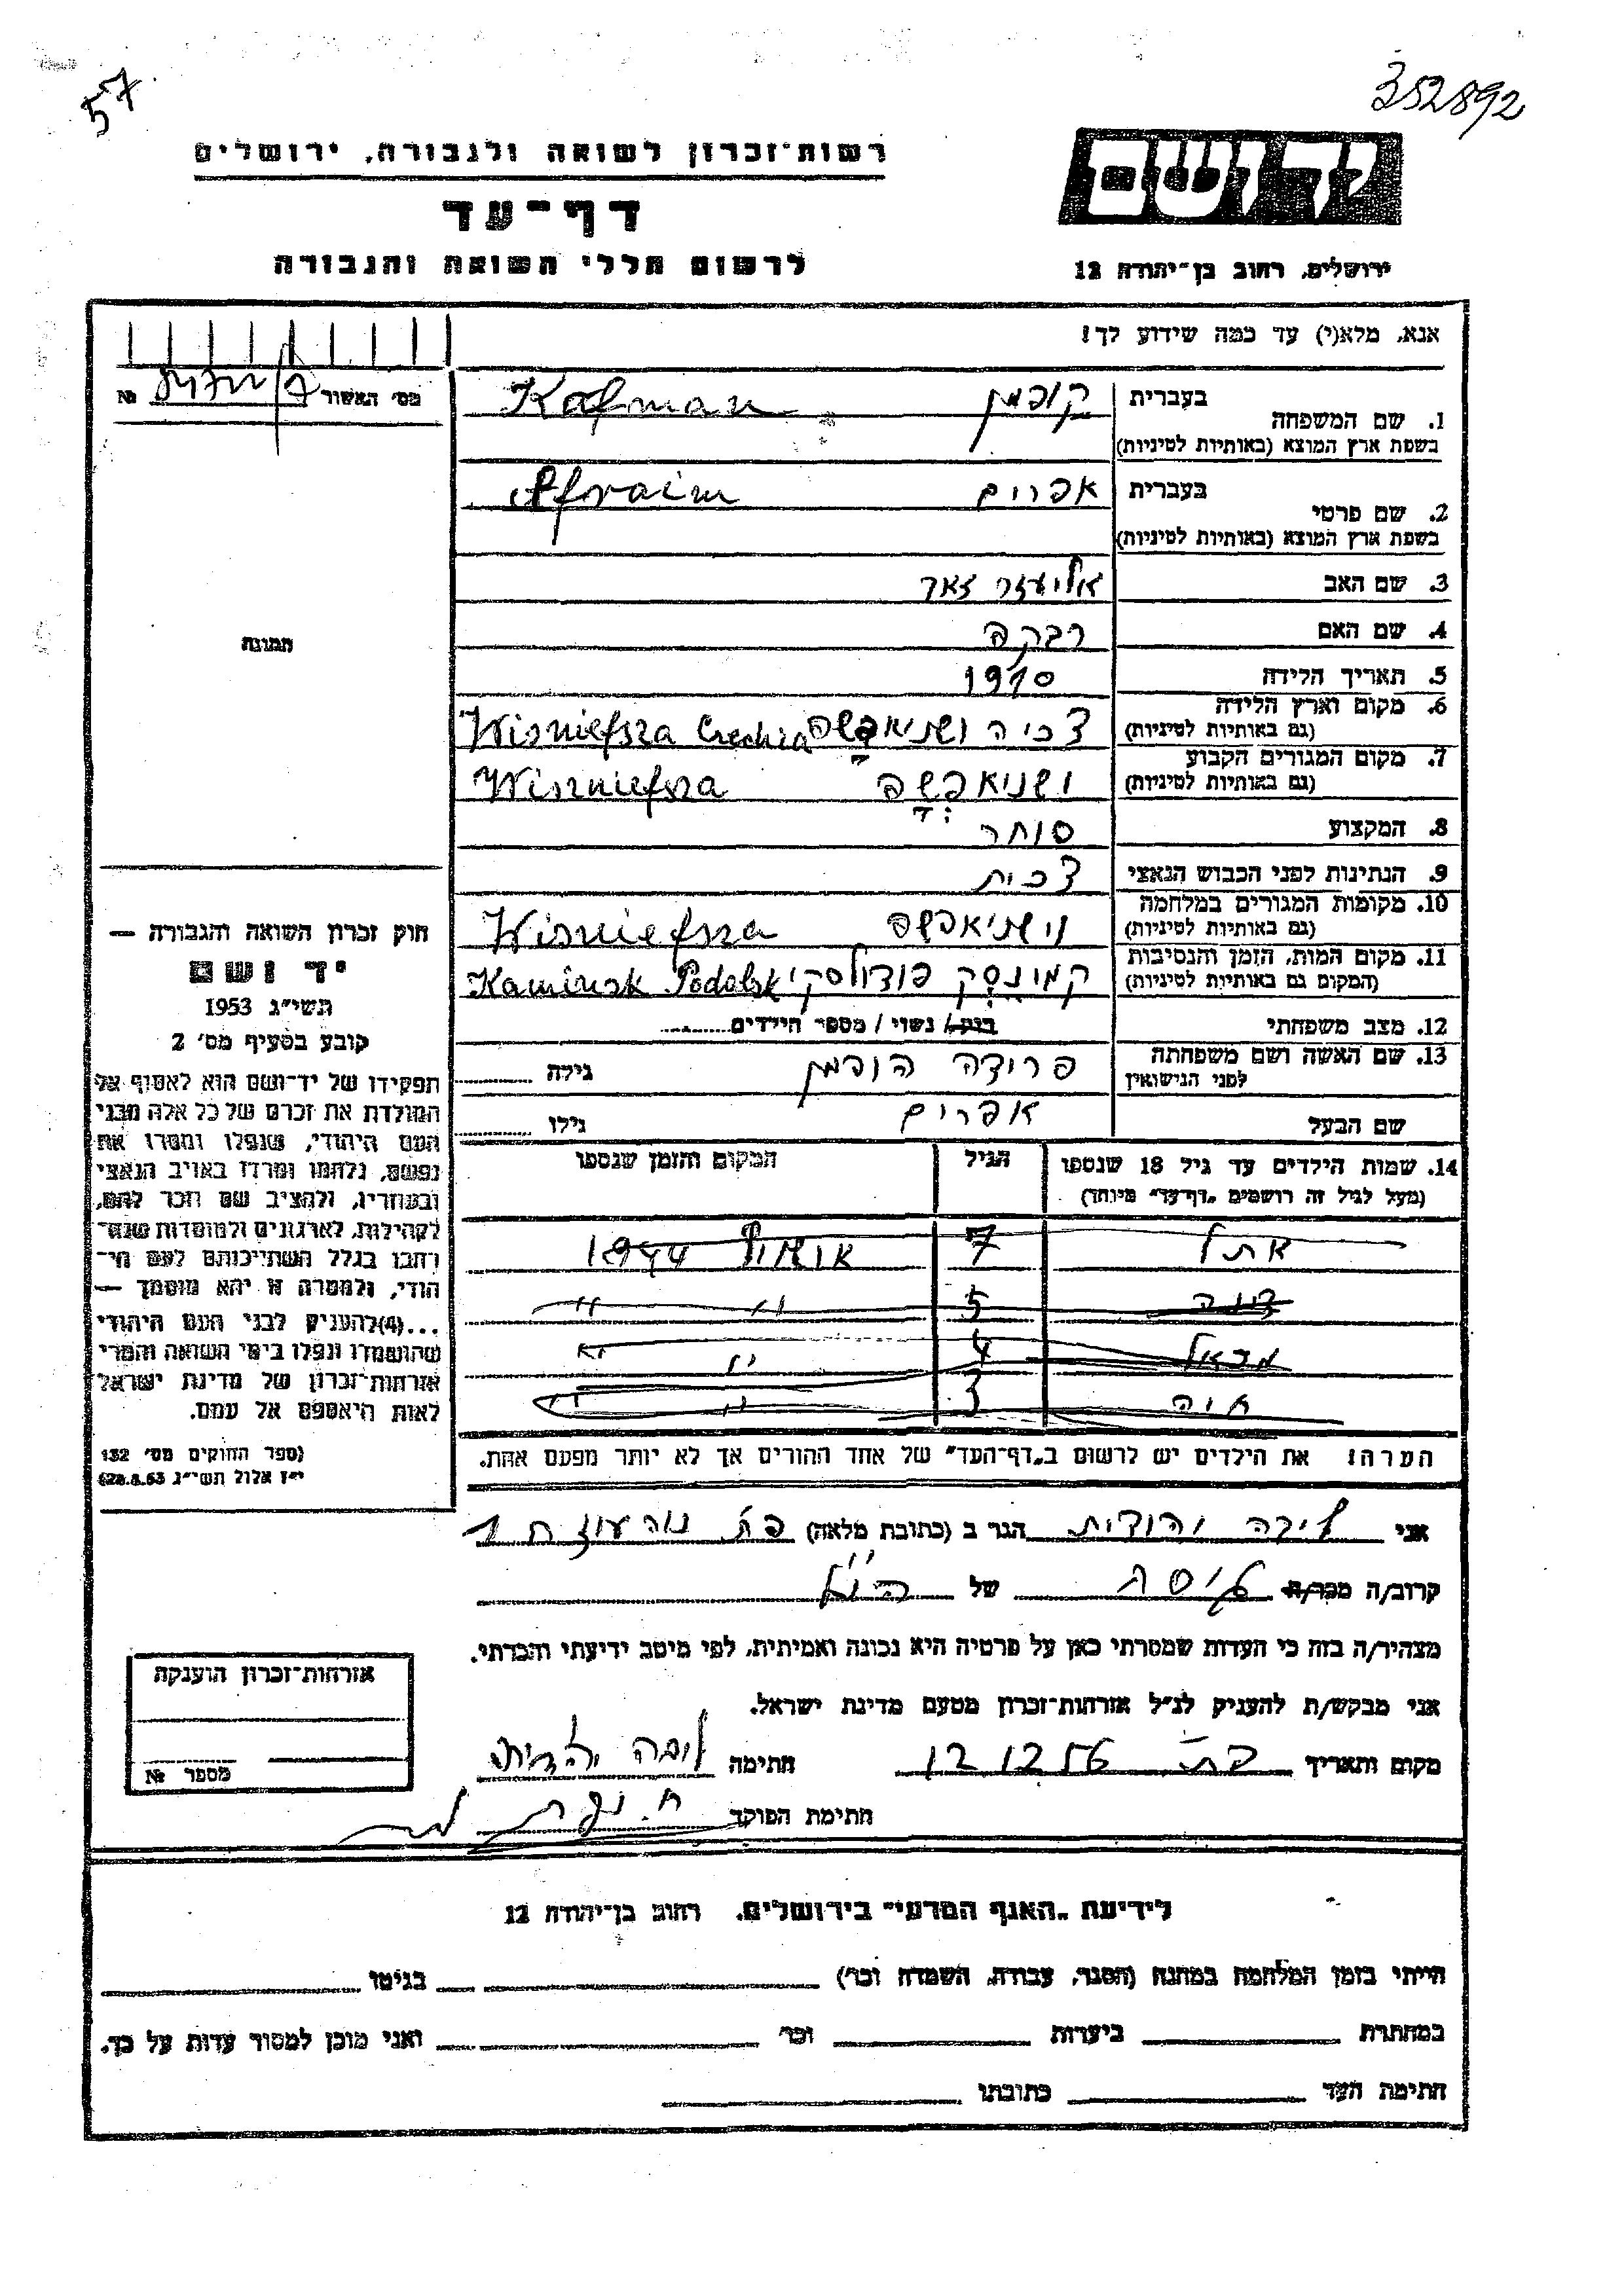 57
352892
רשות־זכרון לשואה ולגבורה, ירושלים
דף־עד
לרשום חללי השואה והגבורה
יד ושם
ירושלים, רחוב בן־יהודה 12
אנא, מלא(י) עד כמה שידוע לך!
מס' האשור №
בעברית קופמן Kofman
1. שם המשפחה
בשפת ארץ המוצא (באותיות לטיניות)
בעברית אפרים Afraim
2. שם פרטי
בשפת ארץ המוצא (באותיות לטיניות)
3. שם האב אליעזר זאב
4. שם האם רבקה
5. תאריך הלידה 1910
6. מקום וארץ הלידה
(גם באותיות לטיניות) צכיה ושניאפשה Wisniefsza Czechia
7. מקום המגורים הקבוע
(גם באותיות לטיניות) ושניאפשה Wiszniefsza
8. המקצוע סוחר
9. הנתינות לפני הכבוש הנאצי צכית
10. מקומות המגורים במלחמה
(גם באותיות לטיניות) וישניאפשה Wisniefsza
11. מקום המות, הזמן והנסיבות
(המקום גם באותיות לטיניות) קמינסק פודולסקי Kaminsk Podolsk
12. מצב משפחתי רווק / נשוי / מספר הילדים
13. שם האשה ושם משפחתה
לפני הנישואין פרידה הופמן גילה
שם הבעל אפרים גילו
14. שמות הילדים עד גיל 18 שנספו הגיל המקום והזמן שנספו
(מעל לגיל זה רושמים "דף־עד" מיוחד)
אתל 7 1944
5 " "
4 " "
3 " "
הערה: את הילדים יש לרשום ב"דף־העד" של אחד ההורים אך לא יותר מפעם אחת.
תמונה
חוק זכרון השואה והגבורה —
יד ושם
תשי"ג 1953
קובע בסעיף מס' 2
תפקידו של יד־ושם הוא לאסוף אל
המולדת את זכרם של כל אלה מבני
העם היהודי, שנפלו ומסרו את
נפשם, נלחמו ומרדו באויב הנאצי
ובעוזריו, ולהציב שם וזכר להם,
לקהילות, לארגונים ולמוסדות שנח־
רבו בגלל השתייכותם לעם הי־
הודי, ולמטרה זו יהא מוסמך —
...(4) להעניק לבני העם היהודי
שהושמדו ונפלו בימי השואה והמרי
אזרחות־זכרון של מדינת ישראל
לאות היאספם אל עמם.
(ספר החוקים מס' 132
י"ז אלול תשי"ג 28.8.53)
אני יהודית הגר ב (כתובת מלאה)
קרוב/ה מכר/ה גיסה של הנ"ל
מצהיר/ה בזה כי העדות שמסרתי כאן על פרטיה היא נכונה ואמיתית, לפי מיטב ידיעתי והכרתי.
אני מבקש/ת להעניק לנ"ל אזרחות־זכרון מטעם מדינת ישראל.
מקום ותאריך 12 12 56 חתימה
חתימת הפוקד
אזרחות־זכרון הוענקה
מספר №
לידיעת "האגף המדעי" בירושלים, רחוב בן־יהודה 12
הייתי בזמן המלחמה במחנה (הסגר, עבודה, השמדה וכו') בגיטו
במחתרת ביערות וכו' ואני מוכן למסור עדות על כך.
חתימת העד כתובתו